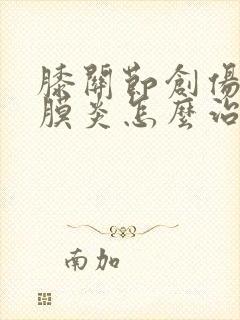 膝關節創傷
膜炎怎麼治
南加